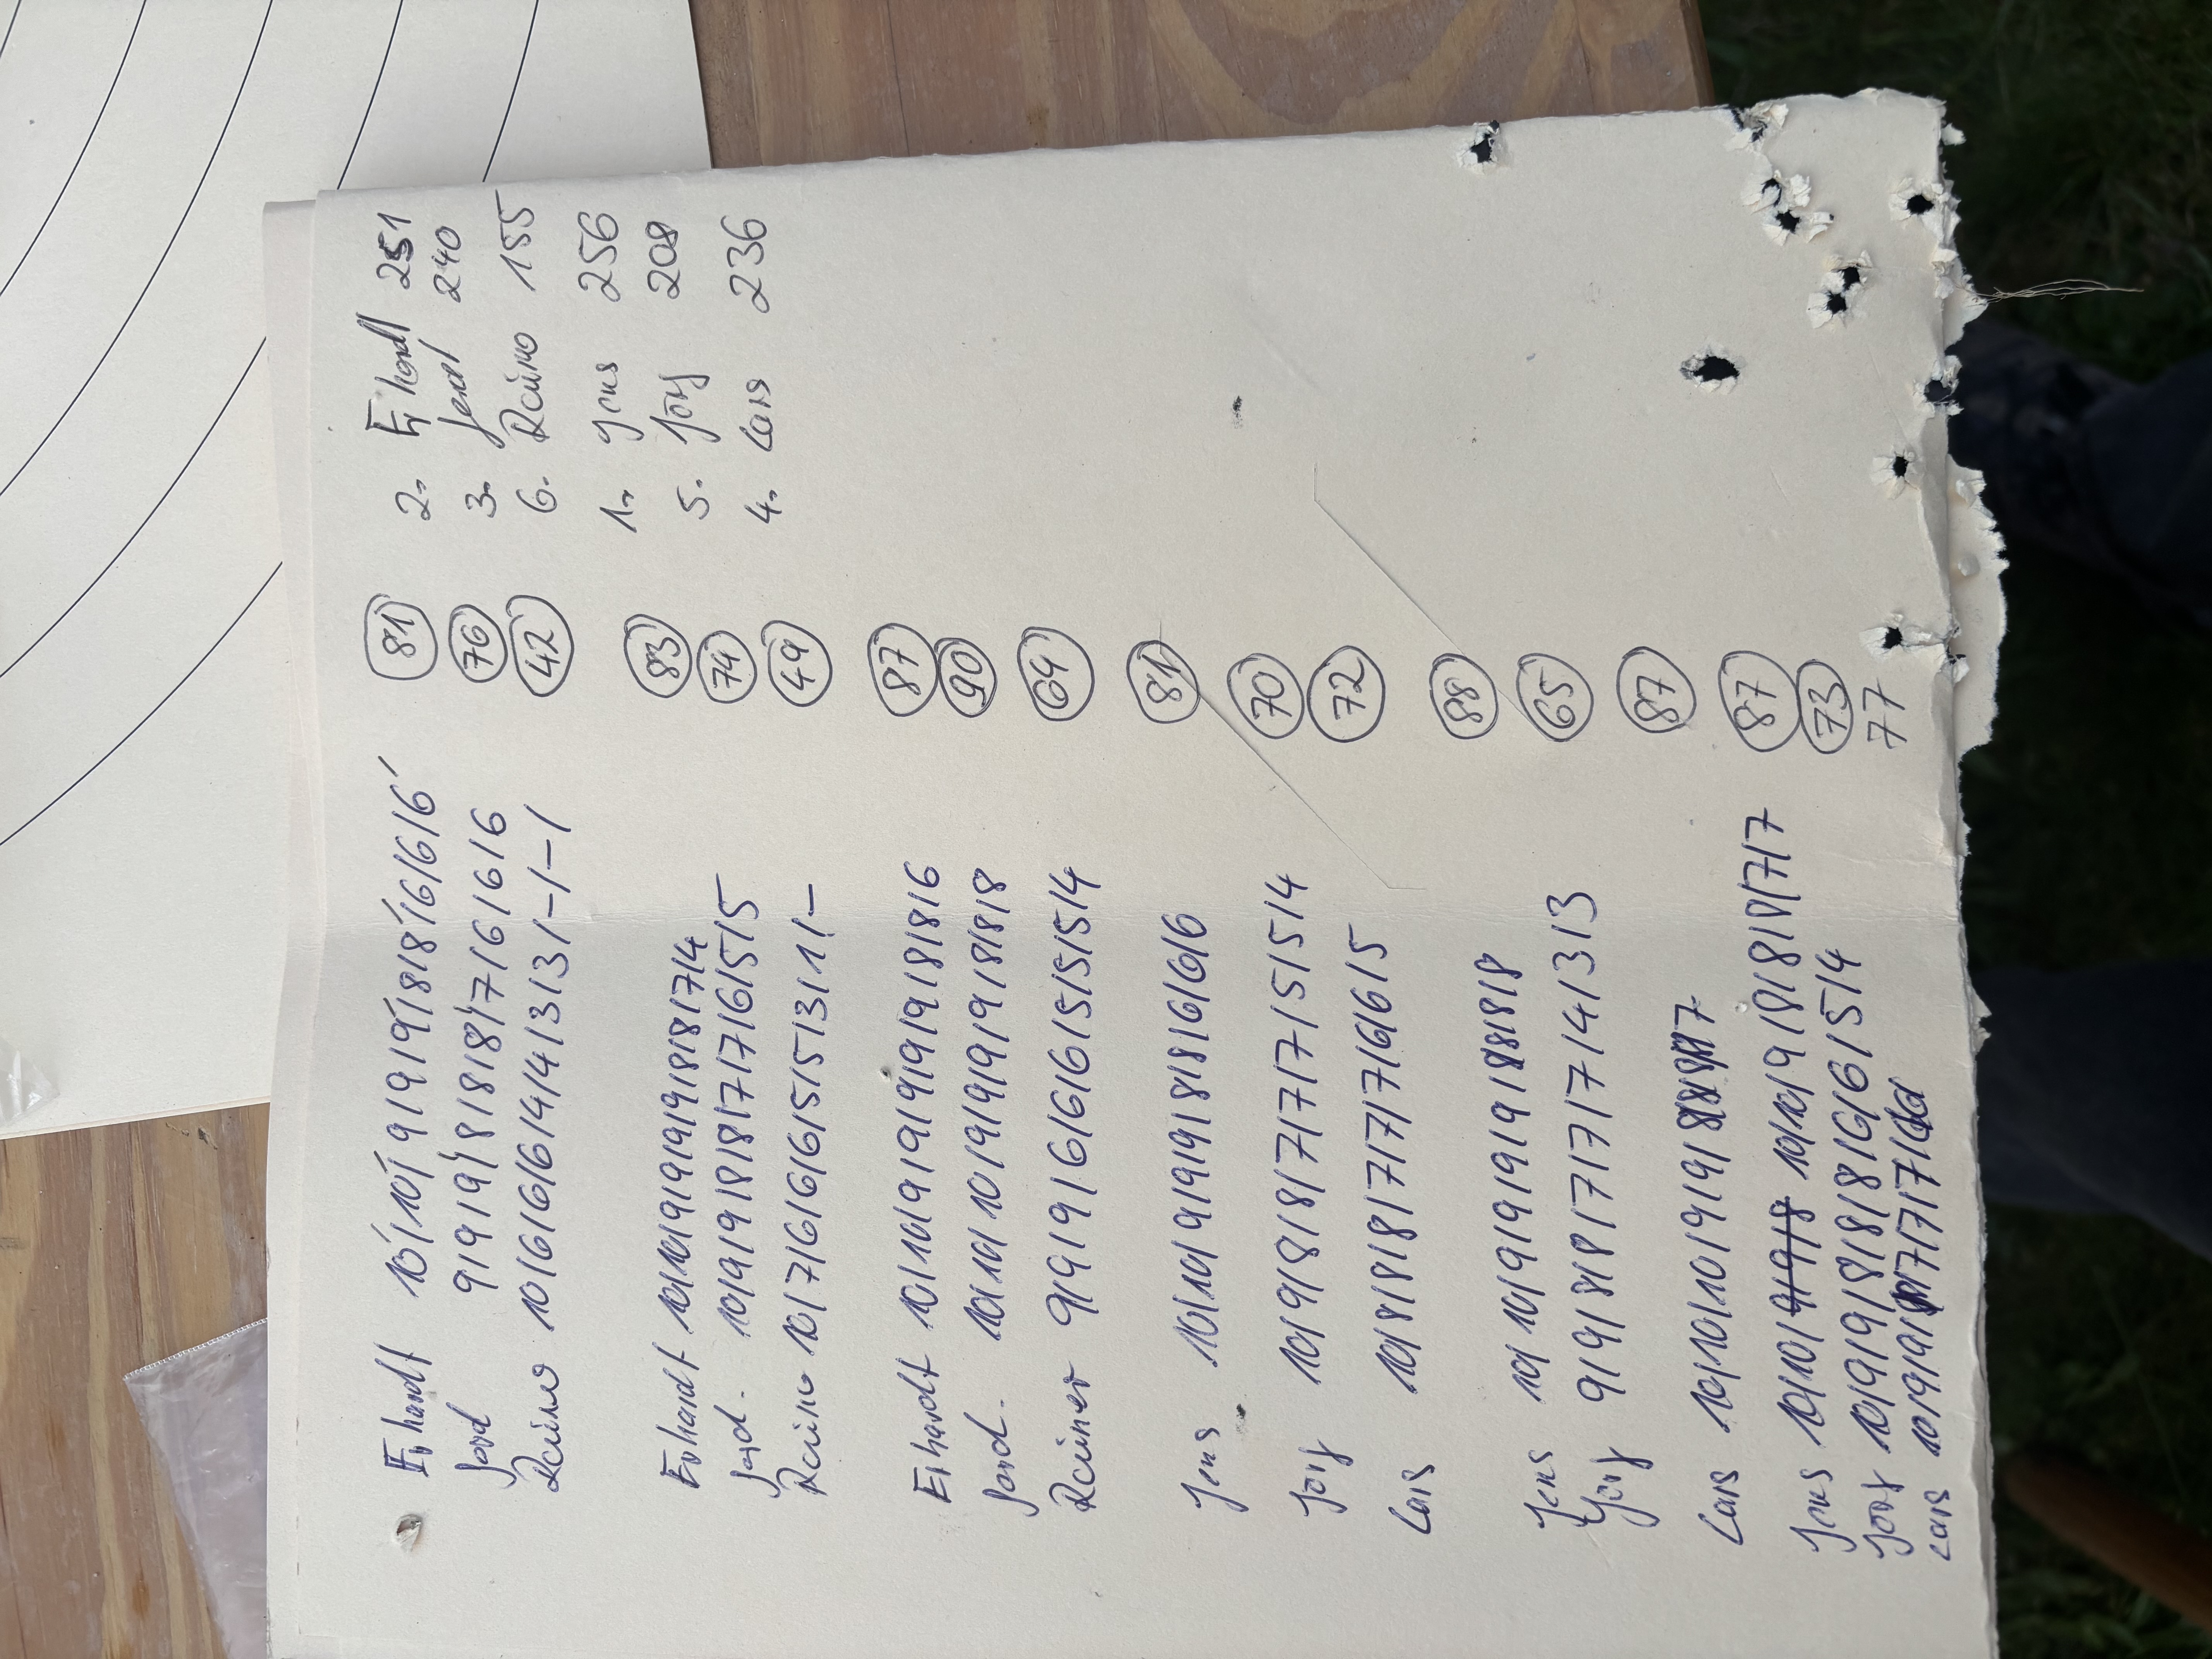 Erhardt 10/10/9/9/9/8/8/6/6/6 81
Gerd 9/9/9/8/8/8/7/6/6/6 76
Reiner 10/6/6/6/4/4/3/3/-/-/ 42
Erhardt 10/10/9/9/9/9/8/8/7/4 83
Gerd. 10/9/9/8/8/7/7/6/5/5 74
Reiner 10/7/6/6/6/5/5/3/1/- 49
Erhardt 10/10/9/9/9/9/9/8/8/6 87
Gerd. 10/10/10/9/9/9/9/8/8/8 90
Reiner 9/9/9/6/6/6/5/5/5/4 64
Jens 10/10/9/9/9/8/8/6/6/6 81
Jörg 10/9/8/8/7/7/7/5/5/4 70
Lars 10/8/8/8/7/7/7/6/6/5 72
Jens 10/10/9/9/9/9/8/8/8/8 88
Jörg 9/9/8/8/7/7/7/4/3/3 65
Lars 10/10/10/9/9/8/8/8/8/7 87
Jens 10/10/9/9/8 10/10/9/8/8/8/7/7 87
Jörg 10/9/9/8/8/8/6/6/5/4 73
Lars 10/9/9/8/7/7/7/7/ 77
2. Erhardt 251
3. Gerd 240
6. Reiner 155
1. Jens 256
5. Jörg 208
4. Lars 236